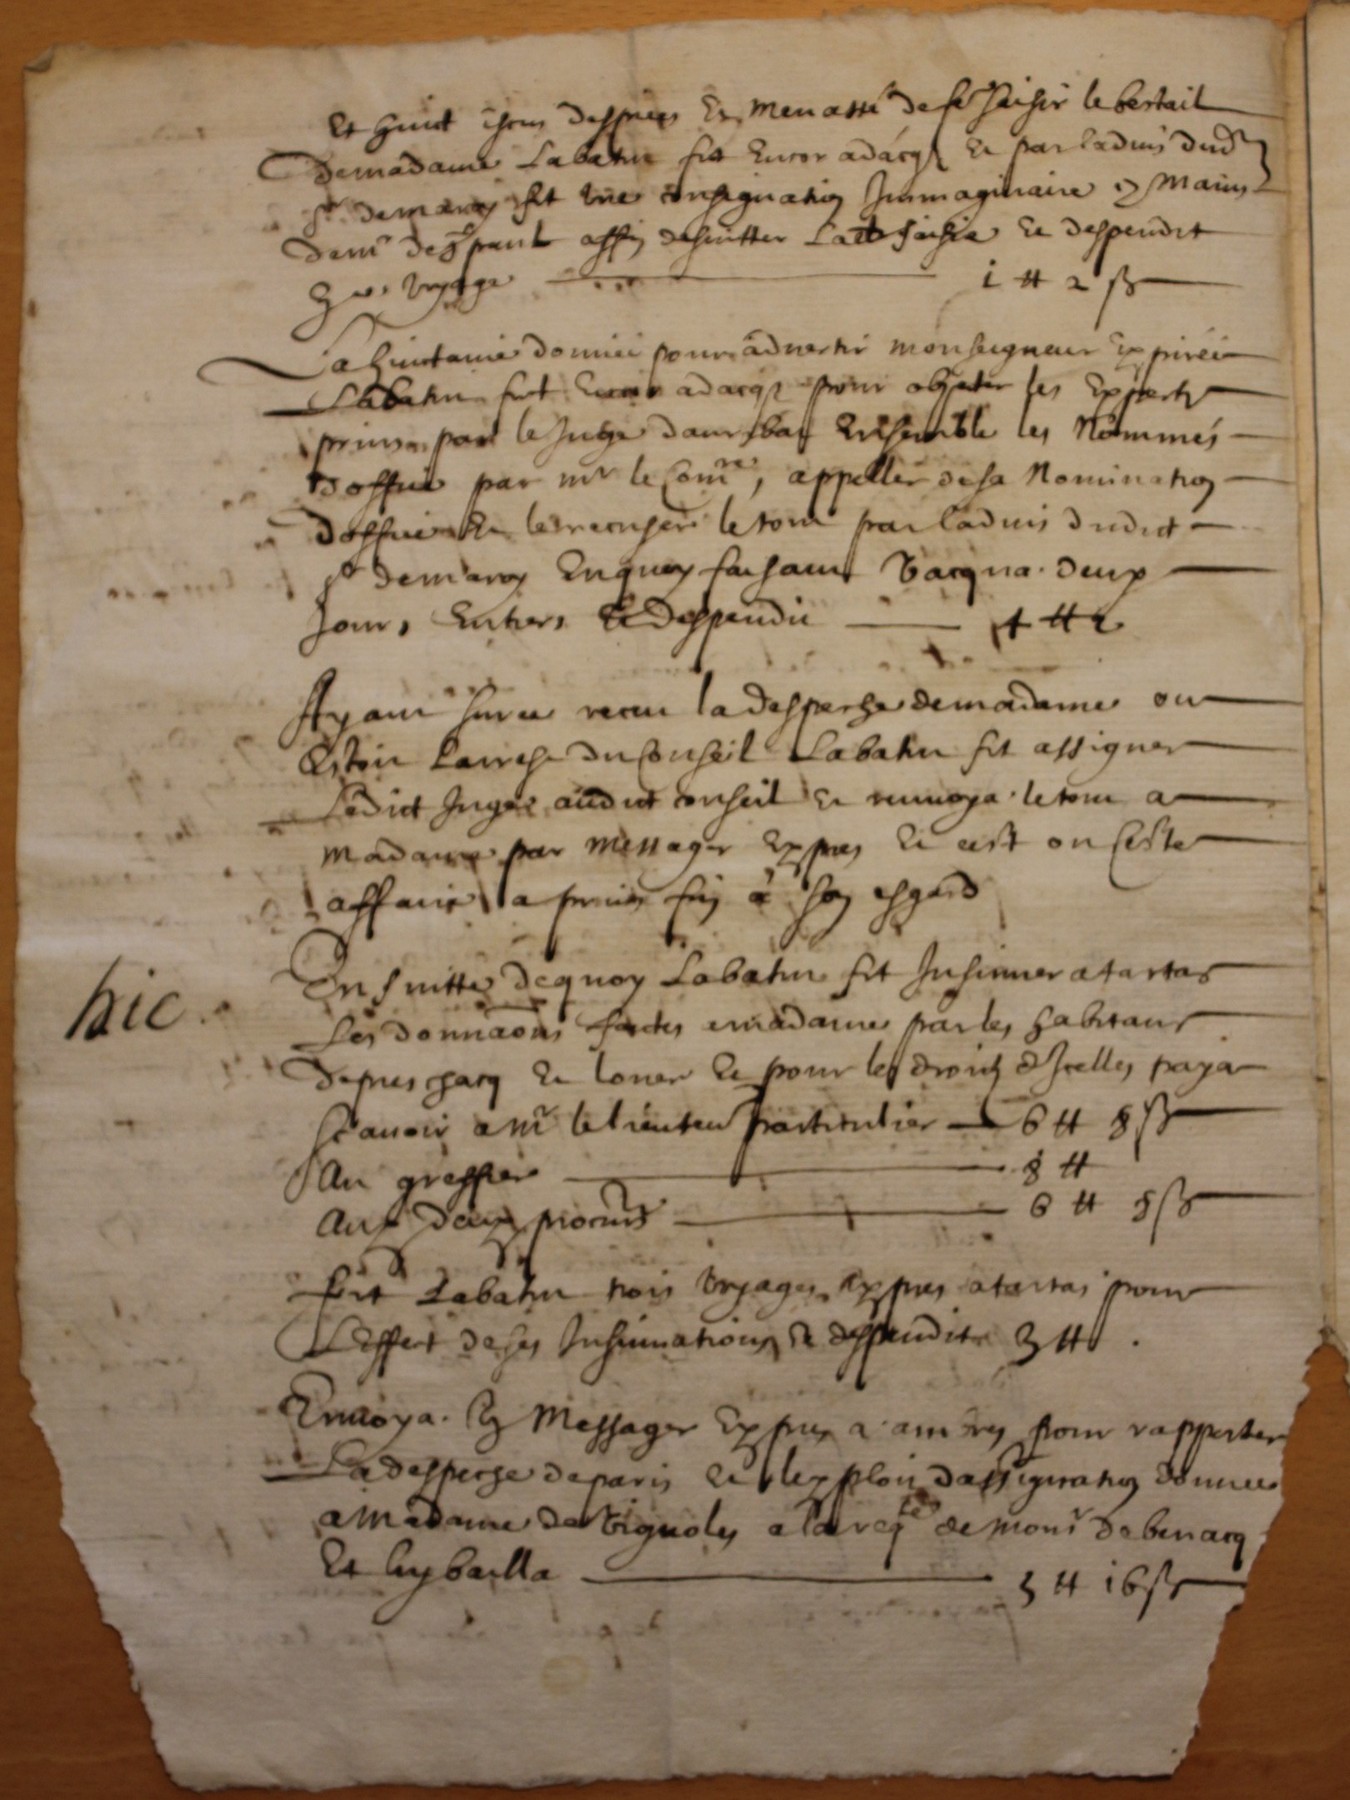 Et huict jours despres Et menassé de fe saisir le bestail
de madame Labatun fut Encor adacqz Et par ladvis dud
sr demaroy fit une consignation Immaginaire es mains
de mr de spaul affin desvitter lad saisie Et despendit
voyage 1 ₶ 2 ß
La huictaine donnée pour advertir monseigneur Expirée
Labatun fut Encor adacqz pour objecter les Expertz
prins par le Juge dauribat Ensemble les Nommés
doffice par mr le Comre, appeller de sa Nomination
doffice Et le recuser le tout par ladvis dudict
sr demaroy En quoy faisant vacqua deux
Jours Entiers Et despendit 4 ₶
Ayant sur ce receu la despeche de madame ou
Estoit larrest du Conseil Labatun fit assigner
Ledict Juge audict conseil Et renvoya le tout a
madame par messager Expres Et cest ou Ceste
affaire a prins fin a son esgard
hic
En suitte de quoy Labatun fit Insinuer a tartas
Les donnaons faictes a madame par les habitans
de preschacq Et louer Et pour les droictz dIcelles paya
Scavoir a mr le lieuten particulier 6 ₶ 8 ß
Au greffier 8 ₶
Aux deux procurs 6 ₶ 8 ß
Fit Labatun trois voyages Expres a tartas pour
LEffect de ses Insinuations Et despendit 3 ₶
Envoya un Messager Expres a amires pour rapporter
La despeche de paris Et lexploit dassignation donnee
a Madame de vignoles a la reqte de monsr de benacq
Et luy bailla 3 ₶ 16 ß